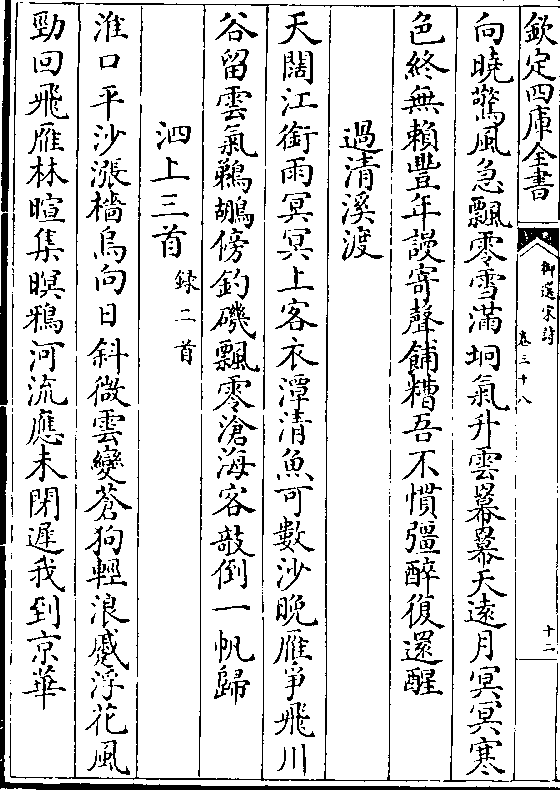 欽定四庫全書
御選宋詩
卷三十八
十二
向曉驚風急飄零雪滿坰氣升雲羃羃天遠月冥冥寒
色終無賴豐年謾寄聲餔糟吾不慣彊醉復還醒
過清溪渡
天闊江銜雨冥冥上客衣潭清魚可數沙晚雁爭飛川
谷留雲氣鵜鶘傍釣磯飄零滄海客敧倒一帆歸
泗上三首錄二首
淮口平沙漲檣烏向日斜微雲變蒼狗輕浪蹙浮花風
勁回飛雁林暄集暝鴉河流應未閉遲我到京華